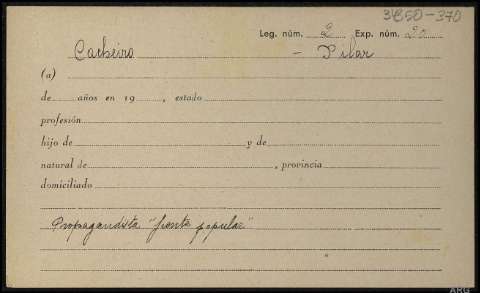 34850-370
Leg. núm. 2 Exp. núm. 20
Cacheiro - Pilar
(a)
de años en 19 , estado
profesión
hijo de y de
natural de , provincia
domiciliado
Propagandista "frente popular"
ARG